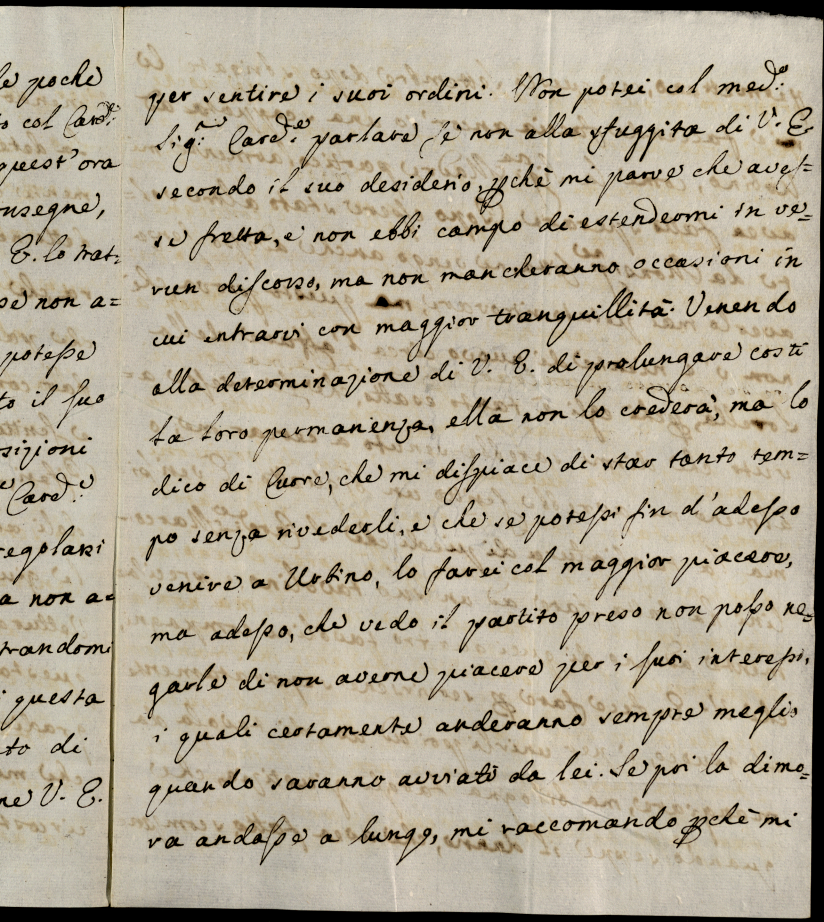 le poche
o col Card:e
quest'ora
onsegne,
E. lo trat=
se non a=
potesse
to il suo
sizioni
Card:e
regolari
a non a=
trandomi
i questa
to di
ne V. E.
per sentire i suoi ordini. Non potei col med:o
Sig:r Card:e parlare se non alla sfuggita di V. E.
secondo il suo desiderio, pchè mi parve che aves=
se fretta, e non ebbi campo di estendermi in ve=
run discorso, ma non mancheranno occasioni in
cui entrarvi con maggior tranquillità. Venendo
alla determinazione di V. E. di prolungare costì
la loro permanenza, ella non lo crederà, ma lo
dico di Cuore, che mi dispiace di star tanto tem=
po senza rivederli, e che se potessi fin d'adesso
venire a Urbino, lo farei col maggior piacere,
ma adesso, che vedo il partito preso non posso ne=
garle di non averne piacere per i suoi interessi,
i quali certamente anderanno sempre meglio
quando saranno avviati da lei. Se poi la dimo=
ra andasse a lungo, mi raccomando pchè mi